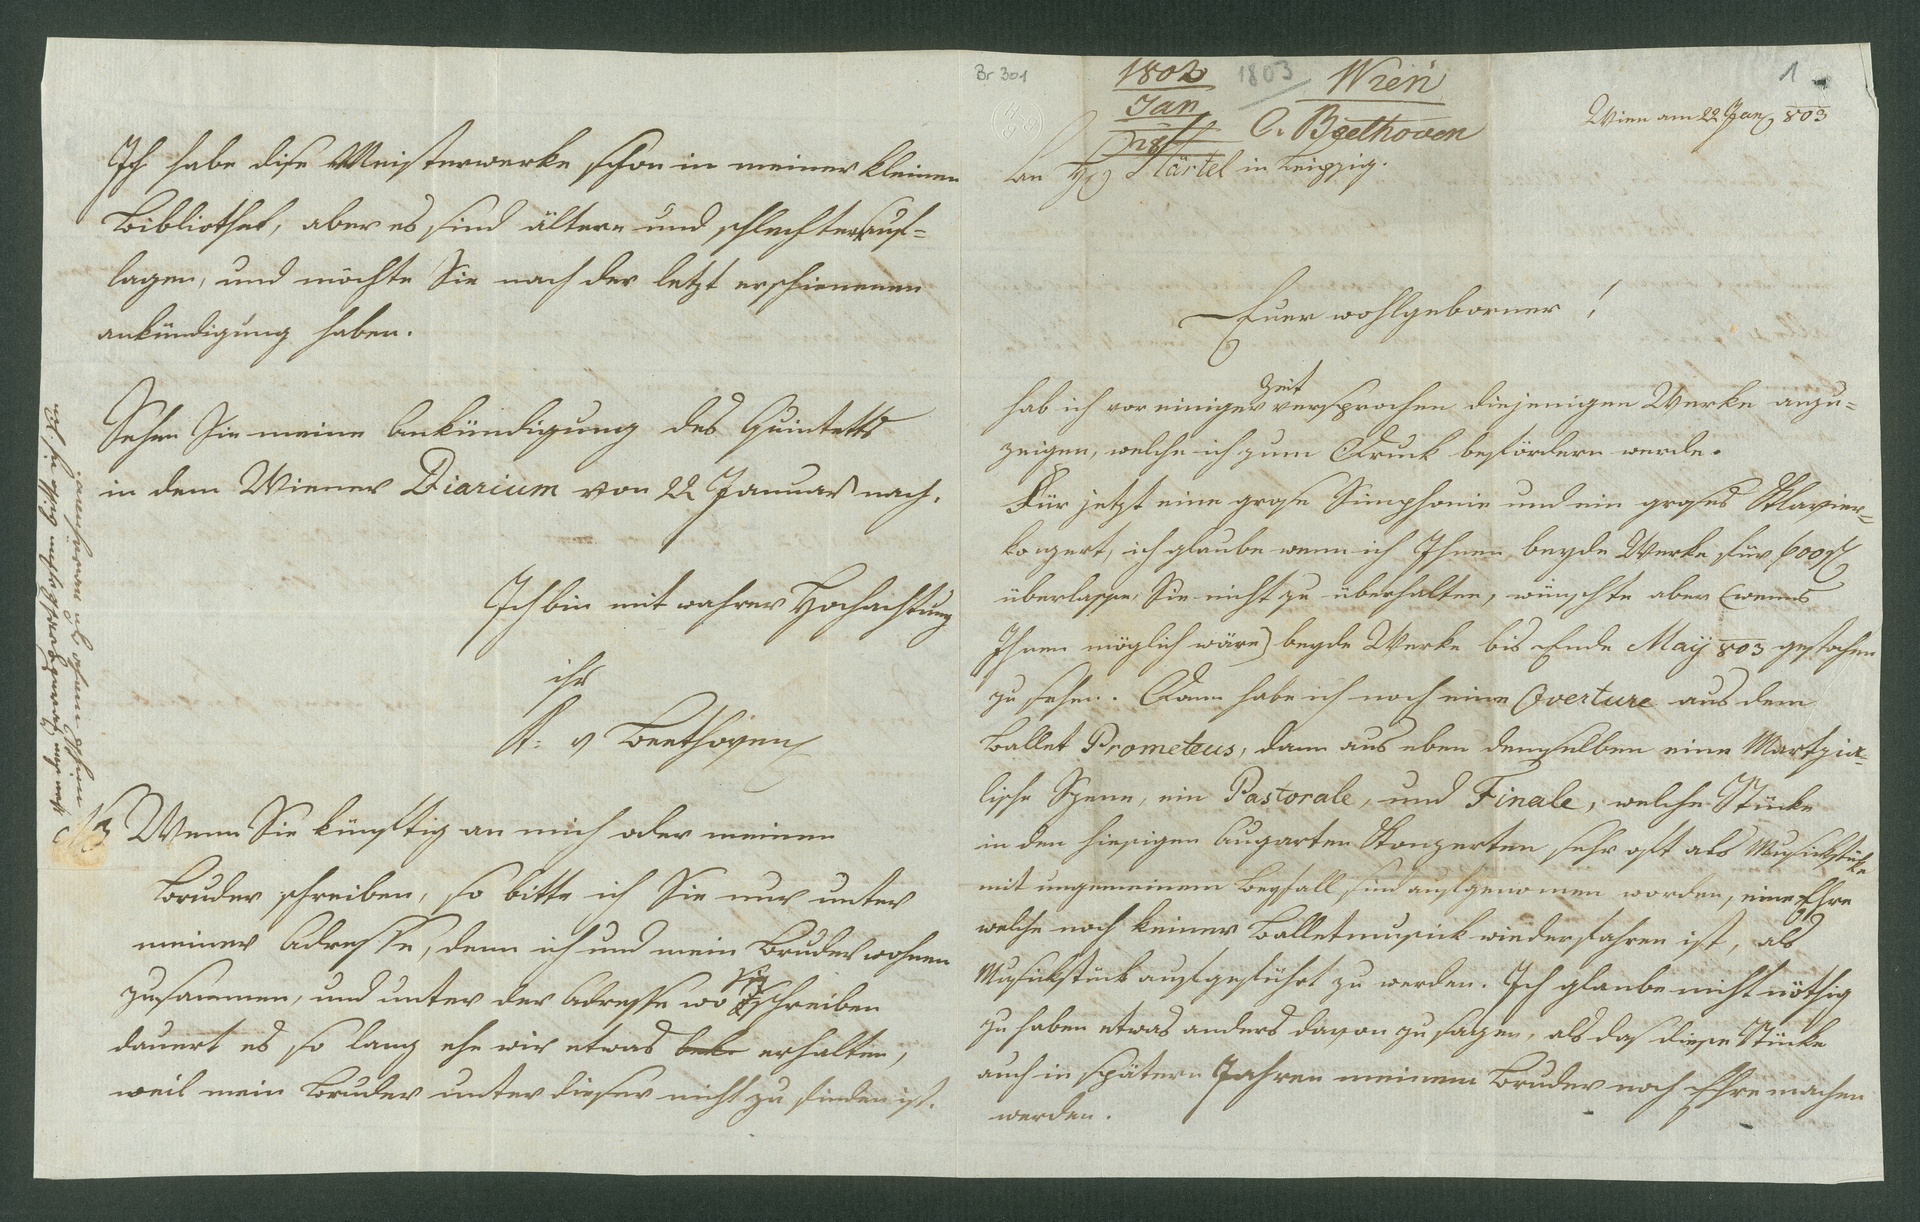 Br 301
1803
1803
Wien
1
Jan
C. v. Beethoven
28
Wien am 22 Jan 803
An H. Härtel in Leipzig.
Euer wohlgeborner!
Zeit
hab ich vor einiger versprochen diejenigen Werke anzu=
zeigen, welche ich zum Druck befördern werde.
Für jetzt eine große Simphonie und ein großes Klavier=
konzert, ich glaube wenn ich Ihnen beyde Werke für 600 fl
überlasse, Sie nicht zu überhalten, wünschte aber (wenns
Ihnen möglich wäre) beyde Werke bis Ende Maij 803 gestochen
zu sehen. Dann habe ich noch eine Overture aus dem
Ballet Prometeus, dann aus eben demselben eine Martzia=
lische Szene, ein Pastorale, und Finale, welche Stücke
in den hiesigen Augarten Konzerten sehr oft als Musickstücke
mit ungemeinem Beyfall sind aufgenomen worden, eine Ehre
welche noch keiner Balletmusick wiederfahren ist, als
Musickstück aufgeführt zu werden. Ich glaube nicht nöthig
zu haben etwas anders davon zu sagen, als daß diese Stücke
auch in spätern Jahren meinem Bruder noch Ehre machen
werden.
Ich habe diese Meisterwerke schon in meiner kleinen
Bibliothek, aber es sind ältere und schlechtere Auf=
lagen, und möchte Sie nach der letzt erschienenen
ankündigung haben.
Sehen Sie meine Ankündigung des Quintetts
in dem Wiener Diarium von 22 Januar nach.
Ich bin mit wahrer Hochachtung
ihr
K: v Beethoven
NB Wenn Sie künftig an mich oder meinen
Bruder schreiben, so bitte ich Sie nur unter
meiner Adresse, denn ich und mein Bruder wohnen
Sie
zusammen, und unter der Adresse wo schreiben
dauert es so lang ehe wir etwas erhalten,
weil mein Bruder unter dieser nicht zu finden ist.